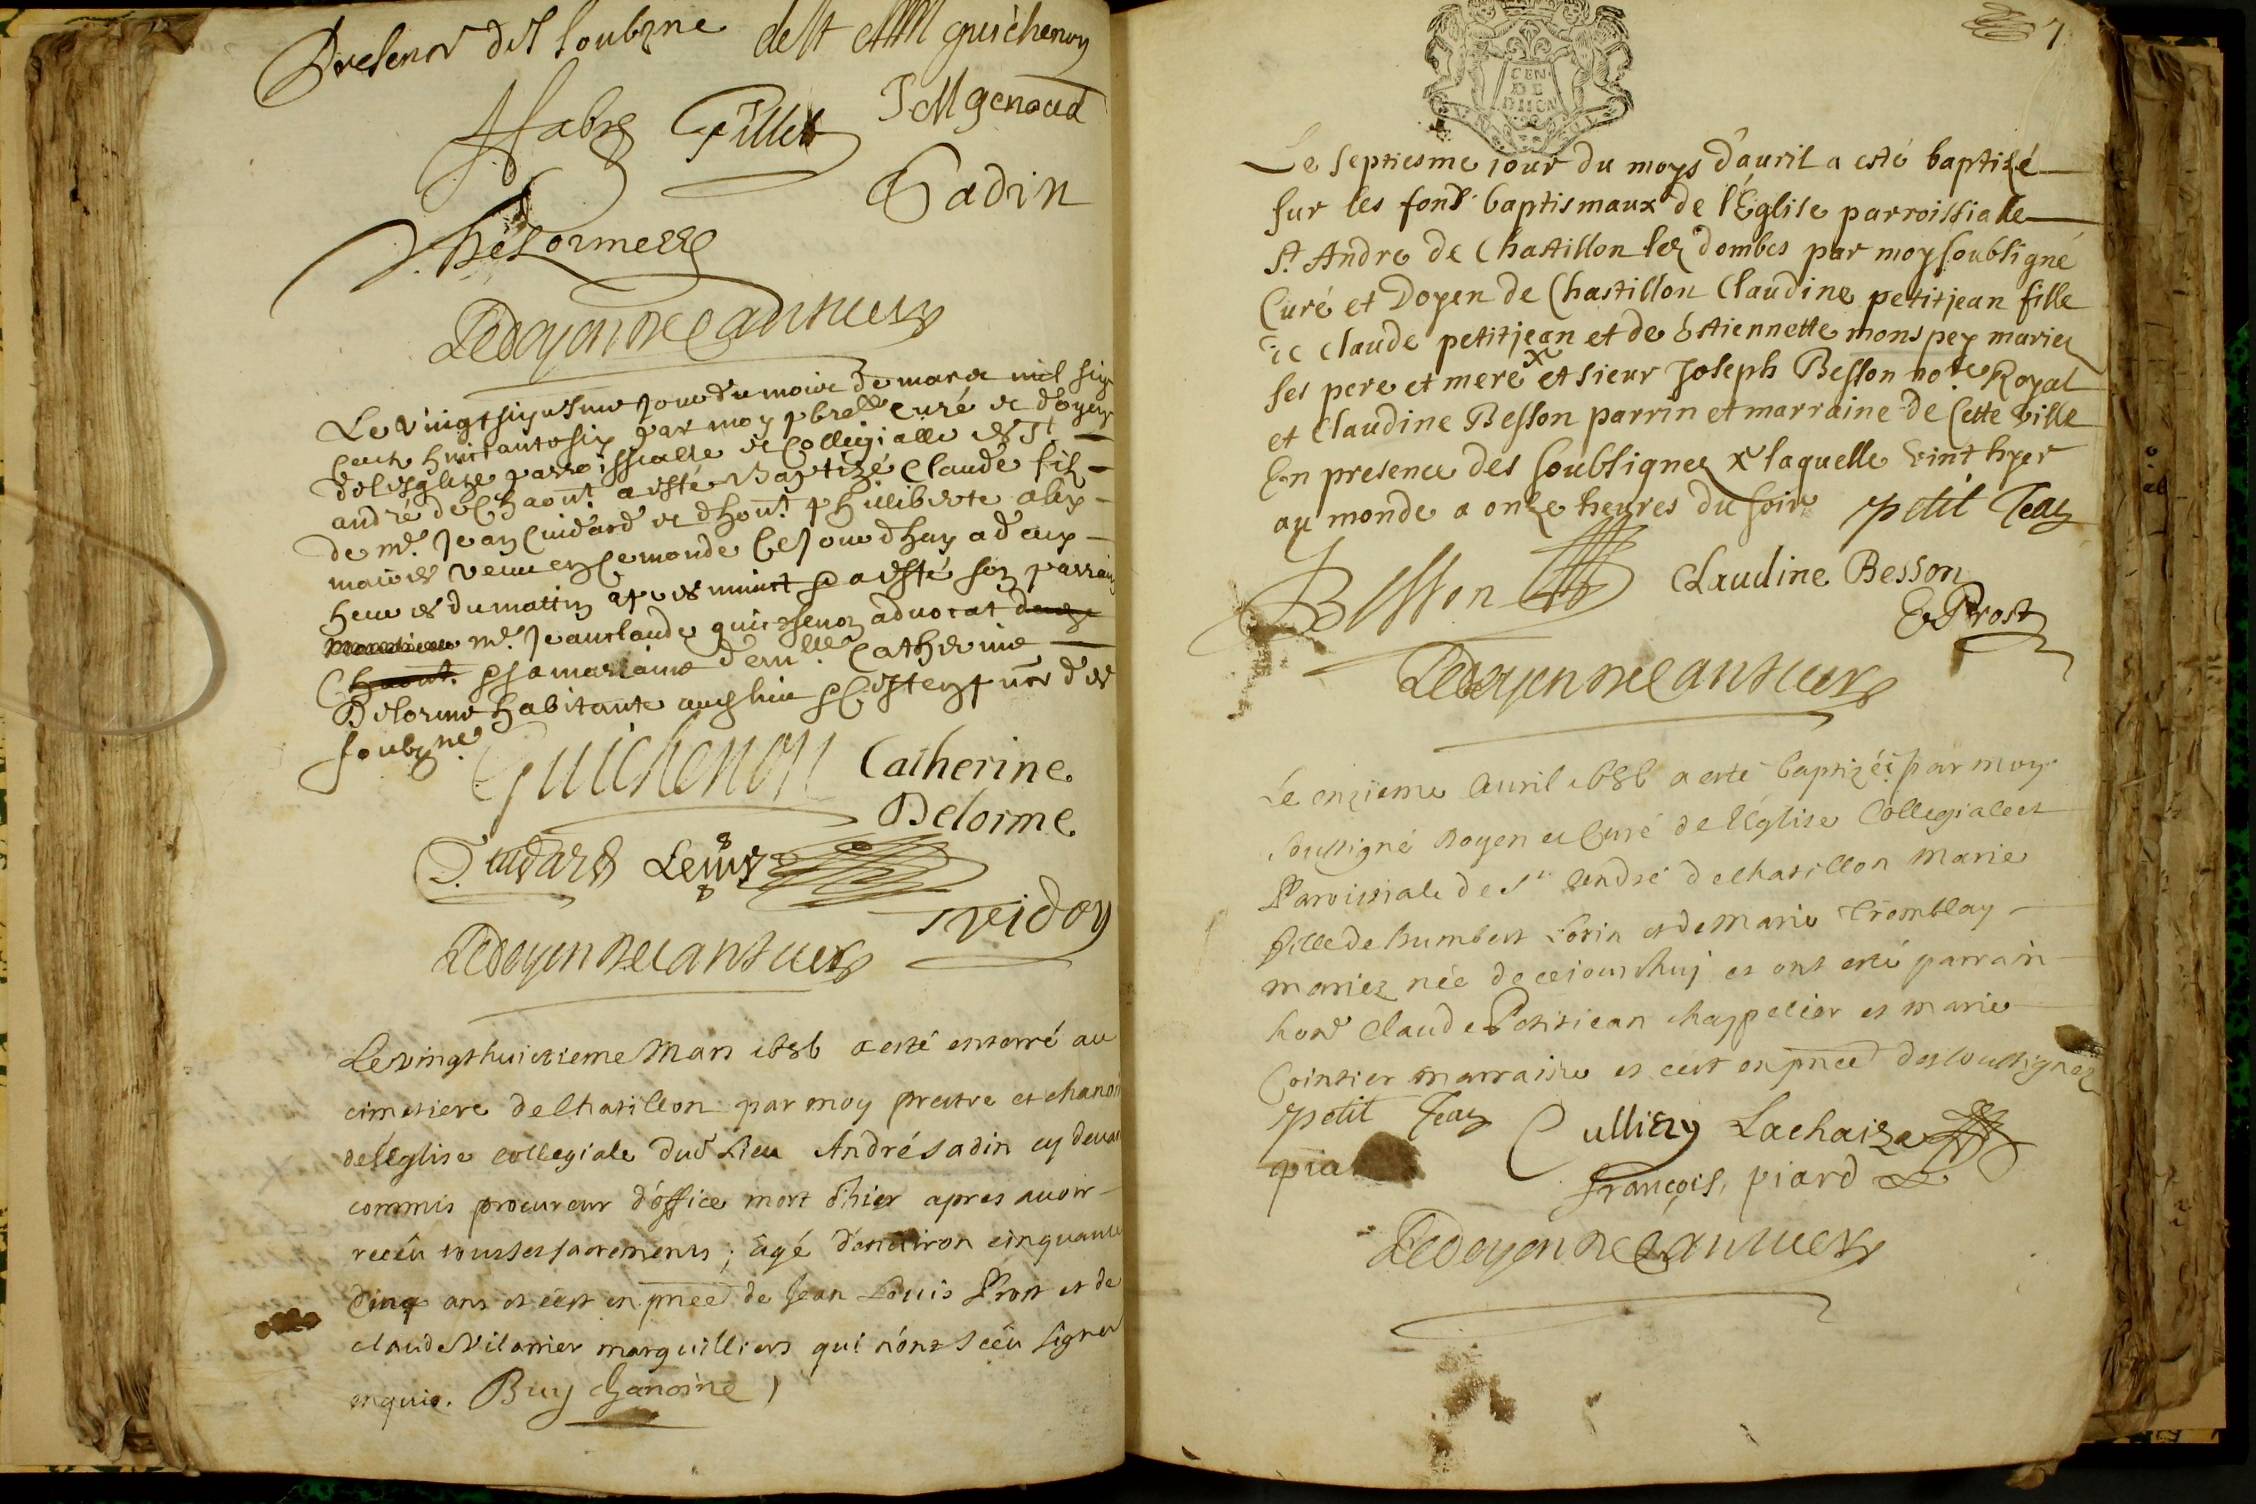 Presence des soubzne
guichenon
J M genoud
fabre
Pillet
Sadin
Ledoyen
Le vingtsixiesme jour du moise de marce mil six
cent huictantesix par moy pbre curé et doyen
delesglize parroissialle et Collegialle de St
andré de Chaont a esté Baptizé Claude filz
de me. Jean Cuidard et dhont. philliberte alix
mariés venu en ce monde Ce Jourdhuy a deux
heures du mattin apres minuict a esté son parrain
me. Jeanclaude guichenon advocat
Chaont. sa marraine demlle Catherine
Delorme habitante audt lieu
soubzne
Guichenon Catherine
Delorme
Ledoyen
Le vingthuictieme Mars 1686 a esté enterré au
cimetiere de Chatillon par moy prestre et chanoi
de l'Eglise collegiale dud Lieu André Sadin cy devan
commis procureur d'office mort d'hier apres avoir
recëu tous ses sacrements; âgé d'environ cinquante
cinq ans et c'est en pnce de Jean Louis Prost et de
claude Vilarnier marguilliers qui n'ont scëu signer
enquis. Buy chanoine
7
GEN
DE
DIION
Le septiesme iour du moys d'auril a esté baptizé
sur les fonds baptismaux de l'Eglise parroissialle
St. Andre de Chastillon lez dombes par moy soubsigné
Curé et Doyen de Chastillon Claudine petitjean fille
de claude petitjean et de Estiennette monspey mariez
ses pere et mere x et sieur Joseph Besson note Royal
et Claudine Besson parrin et marraine de Cette ville
En presence des soubsignez x laquelle vint hyer
au monde a onze heures du soire petit Jean
Besson Claudine Besson
Prost
Ledoyen
Le onzieme Auril 1686 a esté baptizée par moy
soussigné Doyen et Curé de l'Eglise Collegiale et
Paroissiale de St André de Chatillon Marie
fille de Humbert Lorin et de Marie Tromblay
mariez née de ce iourdhuy et ont esté parrain
hond Claude Petitiean chappelier et marie
Cointier marraine et c'est en pnce des soussignez
petit Jean Culliery Lachaize
pia
françois, piard
Ledoyen